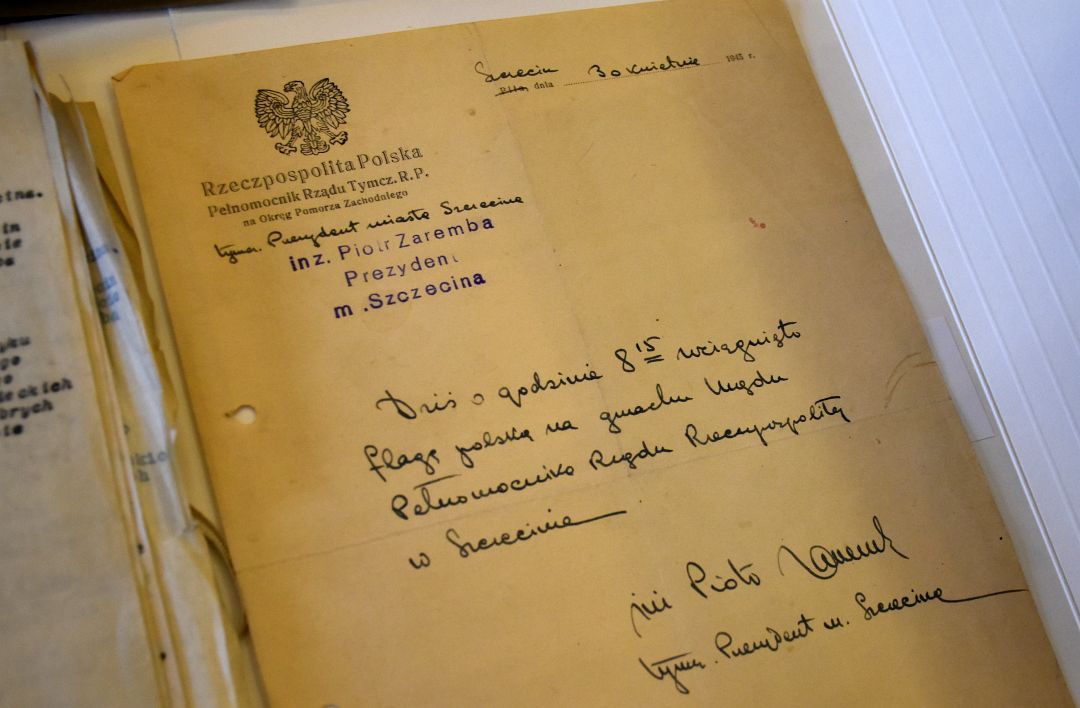 Szczecin
Piła, dnia 30 kwietnia 1945 r.
Rzeczpospolita Polska
Pełnomocnik Rządu Tymcz. R.P.
na Okręg Pomorza Zachodniego
tymcz. Prezydent miasta Szczecina
inz. Piotr Zaremba
Prezydent
m .Szczecina
Dziś o godzinie 8 15 wciągnięto
flagę polską na gmachu Urzędu
Pełnomocnika Rządu Rzeczypospolitej
w Szczecinie
inż Piotr Zaremba
tymcz. Prezydent m. Szczecina